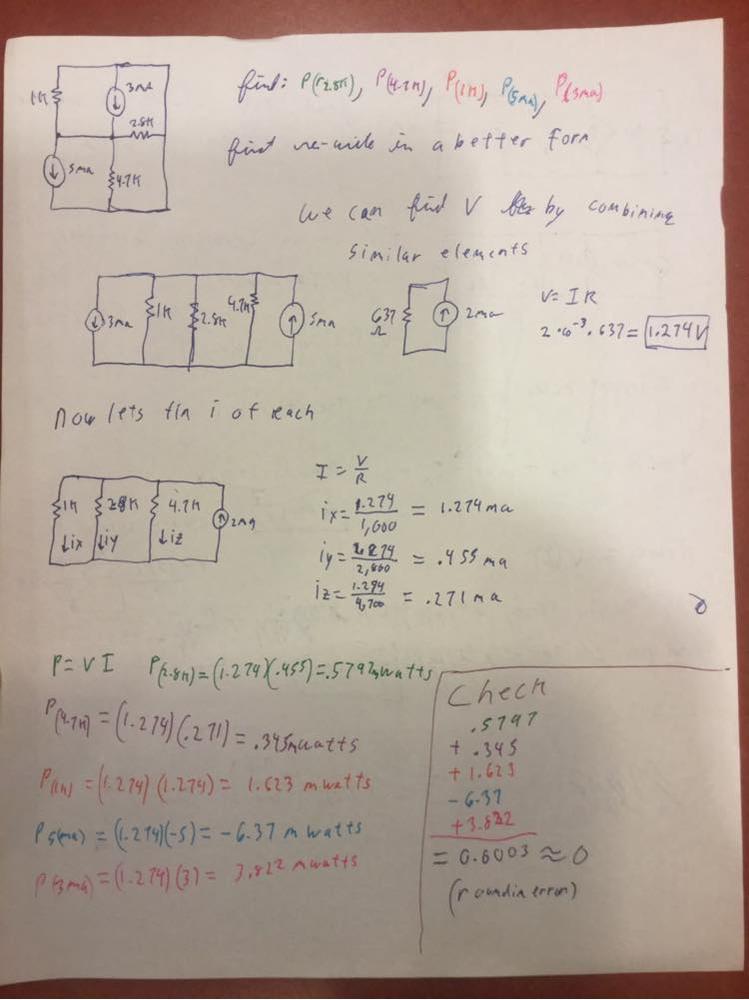 find: P(r2.8K), P(4.7K), P(1K), P(5ma), P(3ma)
1K
3ma
2.8K
first re-write in a better form
5ma
4.7K
we can find V by combining
similar elements
3ma
1K
2.8K
4.7K
5ma
637
Ω
2ma
V= I R
2·10⁻³·637= 1.274V
Now lets fin i of each
1K
2.8K
4.7K
2ma
↓ix
↓iy
↓iz
I = V/R
ix= 1.274/1,000 = 1.274ma
iy= 1.274/2,800 = .455ma
iz= 1.274/4,700 = .271ma
P= V I P(2.8K)=(1.274)(.455)=.5797mwatts
P(4.7K) = (1.274)(.271) = .345mwatts
P(1K) = (1.274)(1.274) = 1.623 mwatts
P5(ma) = (1.274)(-5) = -6.37 m watts
P(3ma) = (1.274)(3) = 3.822 mwatts
Check
.5797
+ .345
+ 1.623
- 6.37
+3.822
= 0.0003 ≈ 0
(roundin error)